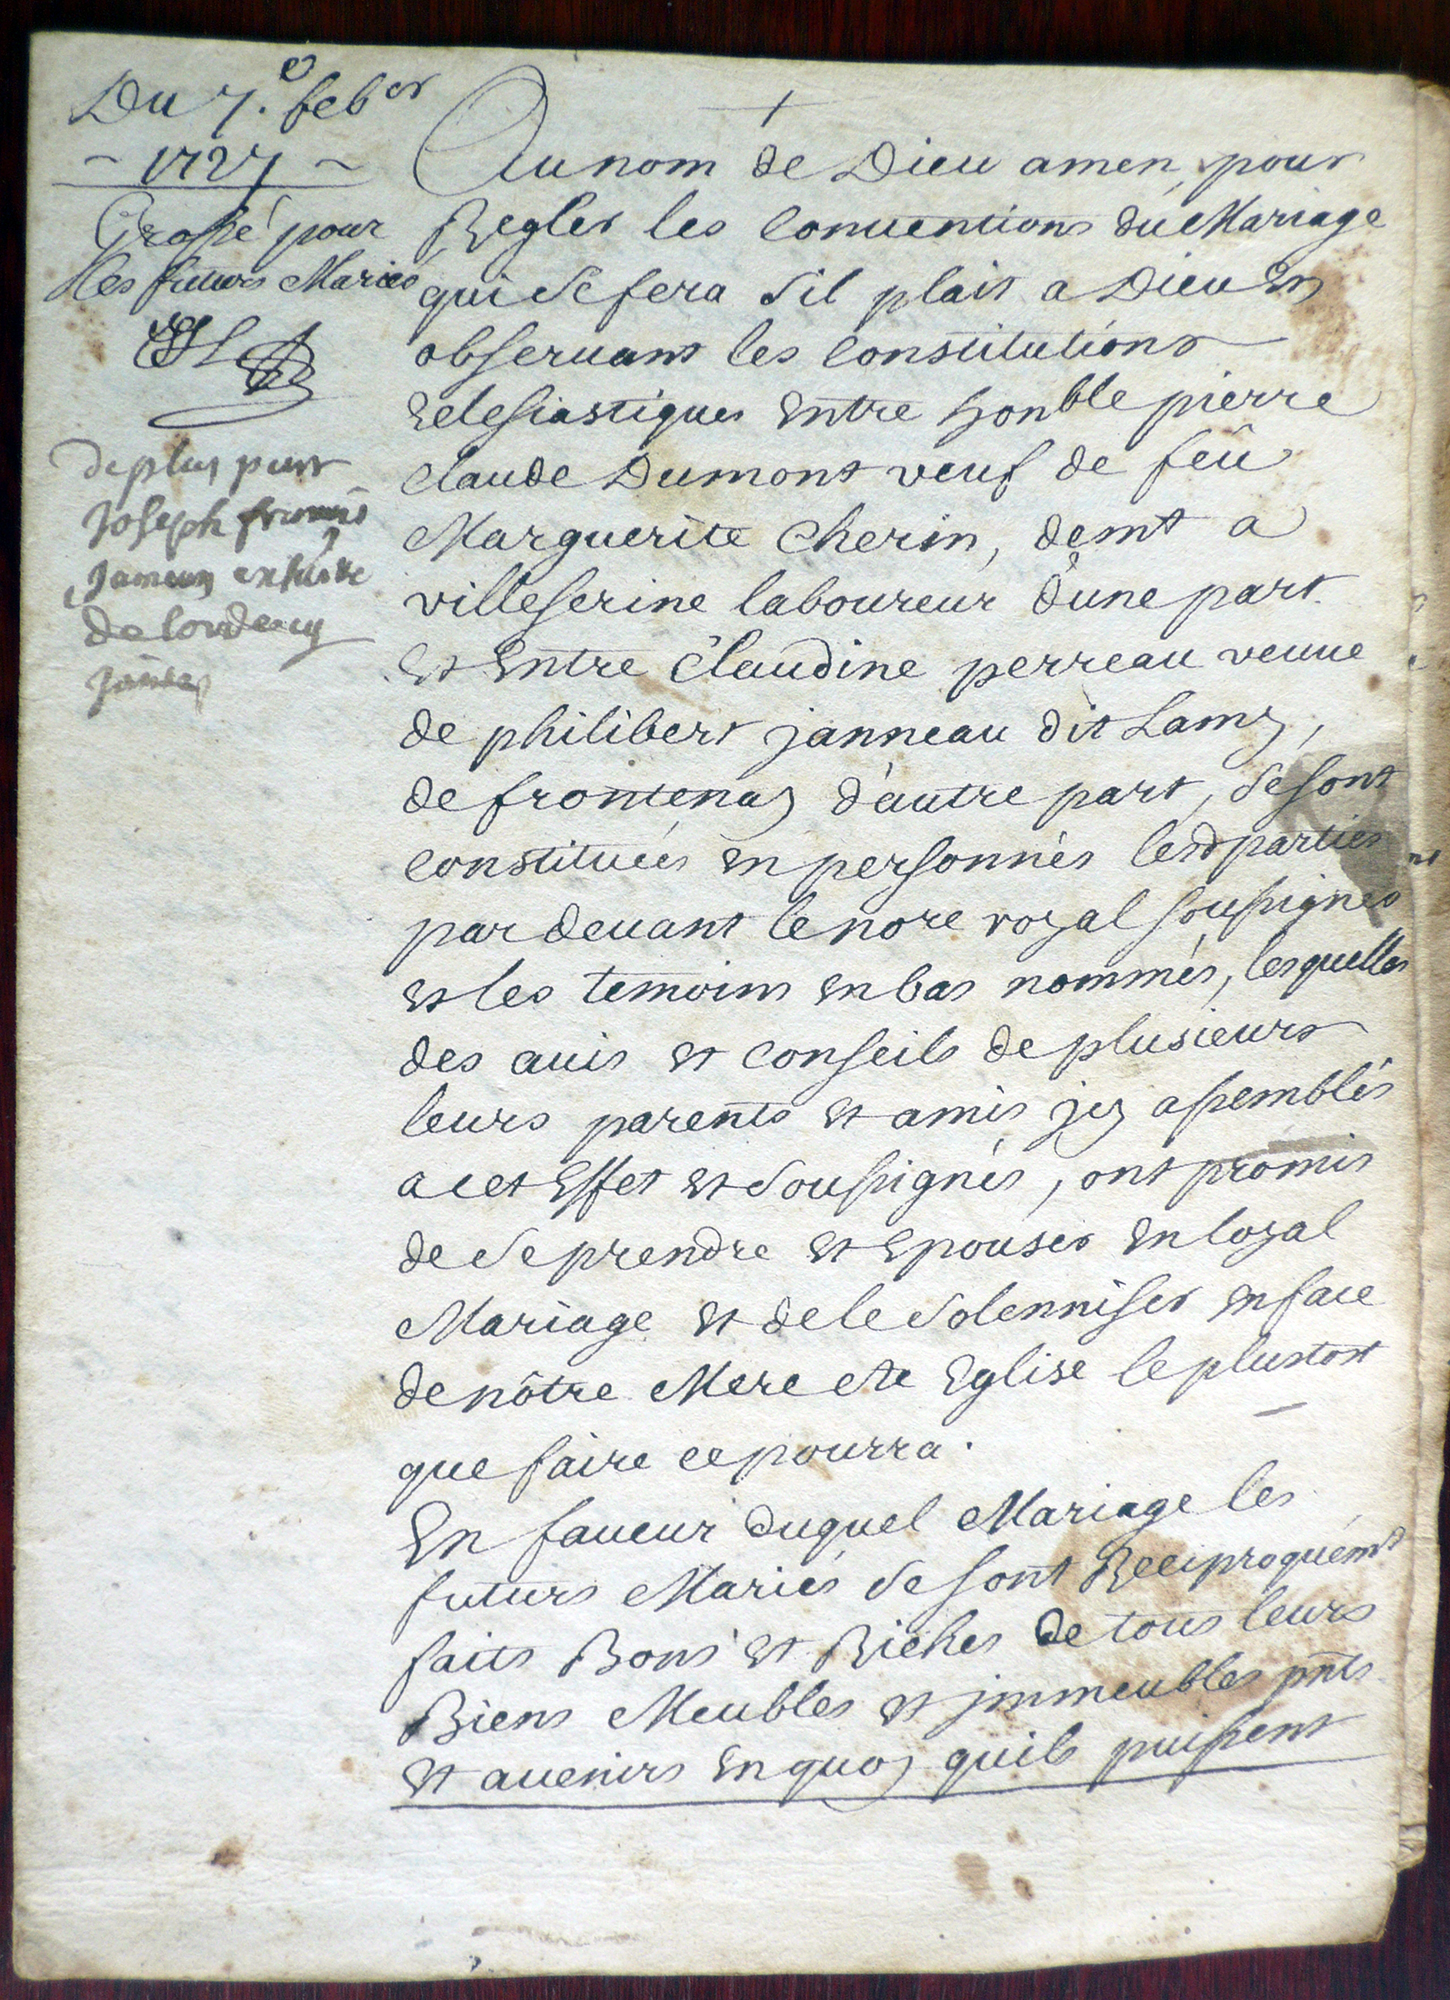 Du 7.e feber
~ 1727 ~
Grossé pour
les futurs Mariés
de plus pour
Joseph
de
Au nom de Dieu amen, pour
Regler les Conuentions du Mariage
qui se fera s'il plait a Dieu En
obseruant les Constitutions
Eclesiastiques Entre honble pierre
Claude Dumont veuf de feû
Marguerite Cherin, demt a
villeserine laboureur d'une part
Et Entre Claudine perreau veuue
de philibert janneau dit Lamy,
de frontenay d'autre part, se sont
Constituées En personnes lesd parties
par deuant le nore royal soussignés
Et les temoins En bas nommés, lesquelles
des auis Et Conseils de plusieurs
leurs parents Et amis jcy assemblés
a cet Effet Et soussignés, ont promis
de se prendre Et Epouser En loyal
Mariage Et de le solenniser En face
de nôtre Mere Ste Eglise le plustost
que faire ce pourra.
En faueur duquel Mariage les
futurs Mariés se sont Reciproquemt
faits Bons Et Riches de tous leurs
Biens Meubles Et jmmeubles pnts
Et auenirs En quoy qu'ils puissent